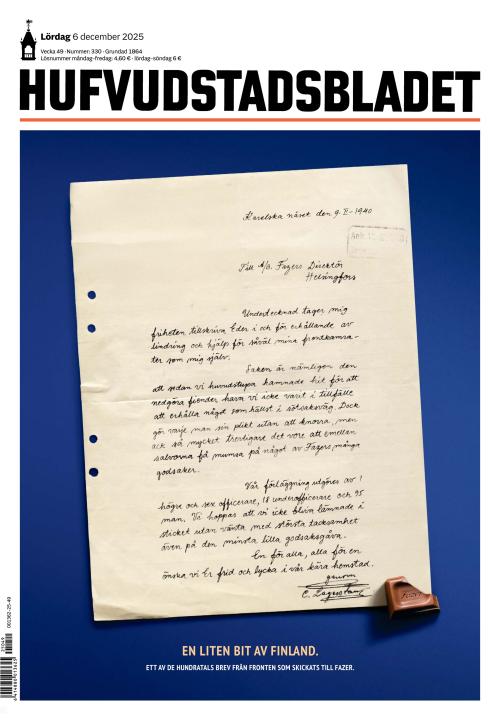 Lördag 6 december 2025
Vecka 49 · Nummer: 330 · Grundad 1864
Lösnummer måndag–fredag: 4,60 € · lördag–söndag 6 €
HUFVUDSTADSBLADET
Karelska näset den 9. II – 1940
Till A/B. Fazers Direktör
Helsingfors
Undertecknad tager mig
friheten tillskriva Eder i och för erhållande av
lindring och hjälp för såväl mina frontkamra-
ter som mig själv.
Saken är nämligen den
att sedan vi huvudstupa hamnade hit för att
nedgöra fiender hava vi icke varit i tillfälle
att erhålla något som hällst i sötsaksväg. Dock
gör varje man sin plikt utan att knorra, men
ack så mycket trevligare det vore att emellan
salvorna få mumsa på något av Fazers många
godsaker.
Vår förläggning utgöres av 1
högre och sex officerare, 18 underofficerare och 95
man. Vi hoppas att vi icke bliva lämnade i
sticket utan vänta med största tacksamhet
även på den minsta lilla godsaksgåva.
En för alla, alla för en
önska vi Er frid och lycka i vår kära hemstad.
genom
Fazer
EN LITEN BIT AV FINLAND.
ETT AV DE HUNDRATALS BREV FRÅN FRONTEN SOM SKICKATS TILL FAZER.